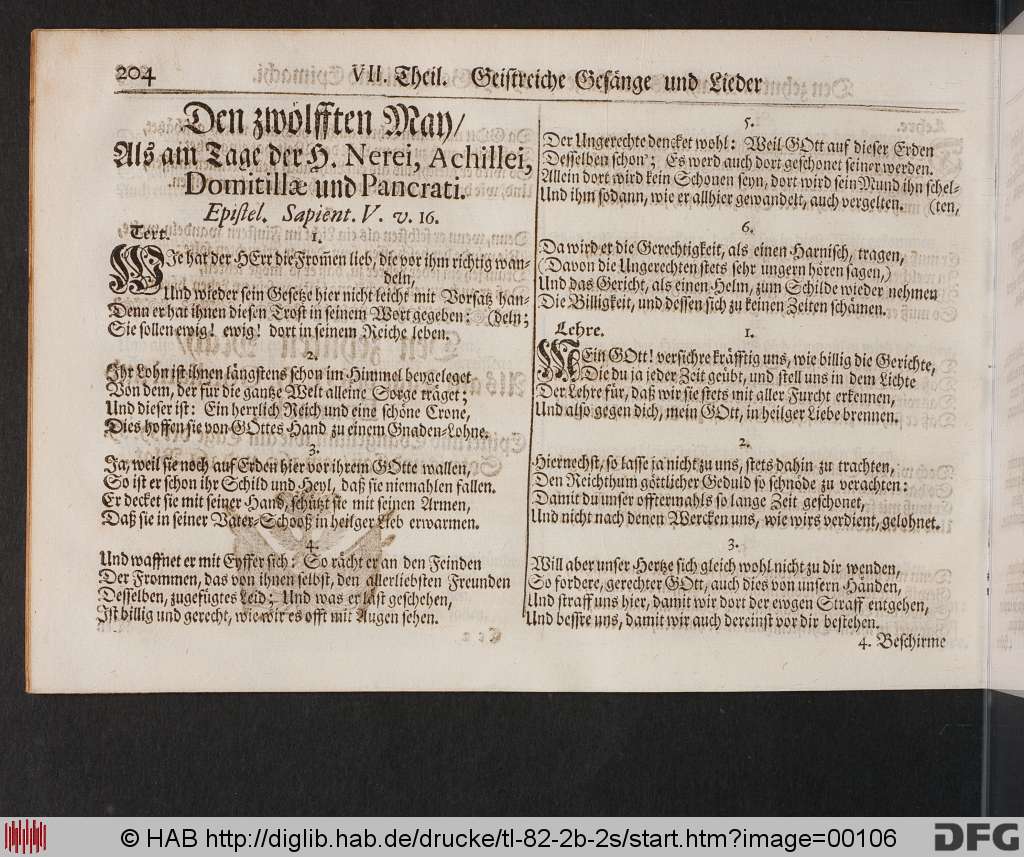 204 VII. Theil. Geistreiche Gesänge und Lieder
Den zwölfften May/
Als am Tage der H. Nerei, Achillei,
Domitillæ und Pancrati.
Epistel. Sapient. V. v. 16.
Text. 1.
WIe hat der HErr die From̃en lieb, die vor ihm richtig wan-
deln,
Und wieder sein Gesetze hier nicht leicht mit Vorsatz han-
Denn er hat ihnen diesen Trost in seinem Wort gegeben: (deln;
Sie sollen ewig! ewig! dort in seinem Reiche leben.
2.
Ihr Lohn ist ihnen längstens schon im Himmel beygeleget
Von dem, der für die gantze Welt alleine Sorge träget;
Und dieser ist: Ein herrlich Reich und eine schöne Crone,
Dies hoffen sie von GOttes Hand zu einem Gnaden-Lohne.
3.
Ja, weil sie noch auf Erden hier vor ihrem GOtte wallen,
So ist er schon ihr Schild und Heyl, daß sie niemahlen fallen.
Er decket sie mit seiner Hand, schützt sie mit seinen Armen,
Daß sie in seiner Vater-Schooß in heilger Lieb erwarmen.
4.
Und waffnet er mit Eyffer sich: So rächt er an den Feinden
Der Frommen, das von ihnen selbst, den allerliebsten Freunden
Desselben, zugefügtes Leid; Und was er läst geschehen,
Ist billig und gerecht, wie wir es offt mit Augen sehen.
5.
Der Ungerechte dencket wohl: Weil GOtt auf dieser Erden
Desselben schon'; Es werd auch dort geschonet seiner werden.
Allein dort wird kein Schonen seyn, dort wird sein Mund ihn schel-
Und ihm sodann, wie er allhier gewandelt, auch vergelten. (ten,
6.
Da wird er die Gerechtigkeit, als einen Harnisch, tragen,
(Davon die Ungerechten stets sehr ungern hören sagen,)
Und das Gericht, als einen Helm, zum Schilde wieder nehmen
Die Billigkeit, und dessen sich zu keinen Zeiten schämen.
Lehre. 1.
MEin GOtt! versichre kräfftig uns, wie billig die Gerichte,
Die du ja jeder Zeit geübt, und stell uns in dem Lichte
Der Lehre für, daß wir sie stets mit aller Furcht erkennen,
Und also gegen dich, mein GOtt, in heilger Liebe brennen.
2.
Hiernechst, so lasse ja nicht zu uns, stets dahin zu trachten,
Den Reichthum göttlicher Geduld so schnöde zu verachten:
Damit du unser offtermahls so lange Zeit geschonet,
Und nicht nach denen Wercken uns, wie wirs verdient, gelohnet.
3.
Will aber unser Hertze sich gleich wohl nicht zu dir wenden,
So fordere, gerechter GOtt, auch dies von unsern Händen,
Und straff uns hier, damit wir dort der ewgen Straff entgehen,
Und bessre uns, damit wir auch dereinst vor dir bestehen.
4. Beschirme
© HAB http://diglib.hab.de/drucke/tl-82-2b-2s/start.htm?image=00106
DFG